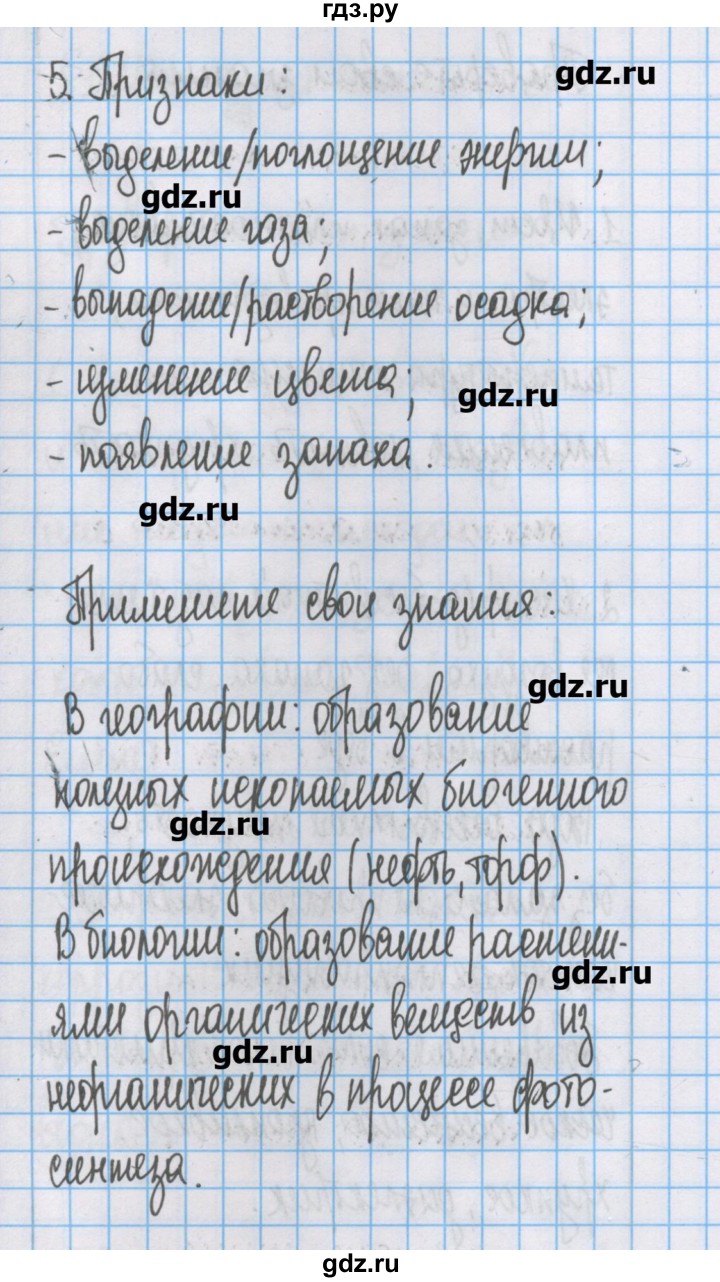 гдз.ру
5. Признаки:
gdz.ru
- выделение/поглощение энергии;
gdz.ru
- выделение газа;
- выпадение/растворение осадка;
- изменение цвета;
gdz.ru
- появление запаха.
gdz.ru
Примените свои знания:
gdz.ru
В географии: образование
полезных ископаемых биогенного
gdz.ru
происхождения (нефть, торф).
В биологии: образование растени-
gdz.ru
ями органических веществ из
gdz.ru
неорганических в процессе фото-
синтеза.
gdz.ru